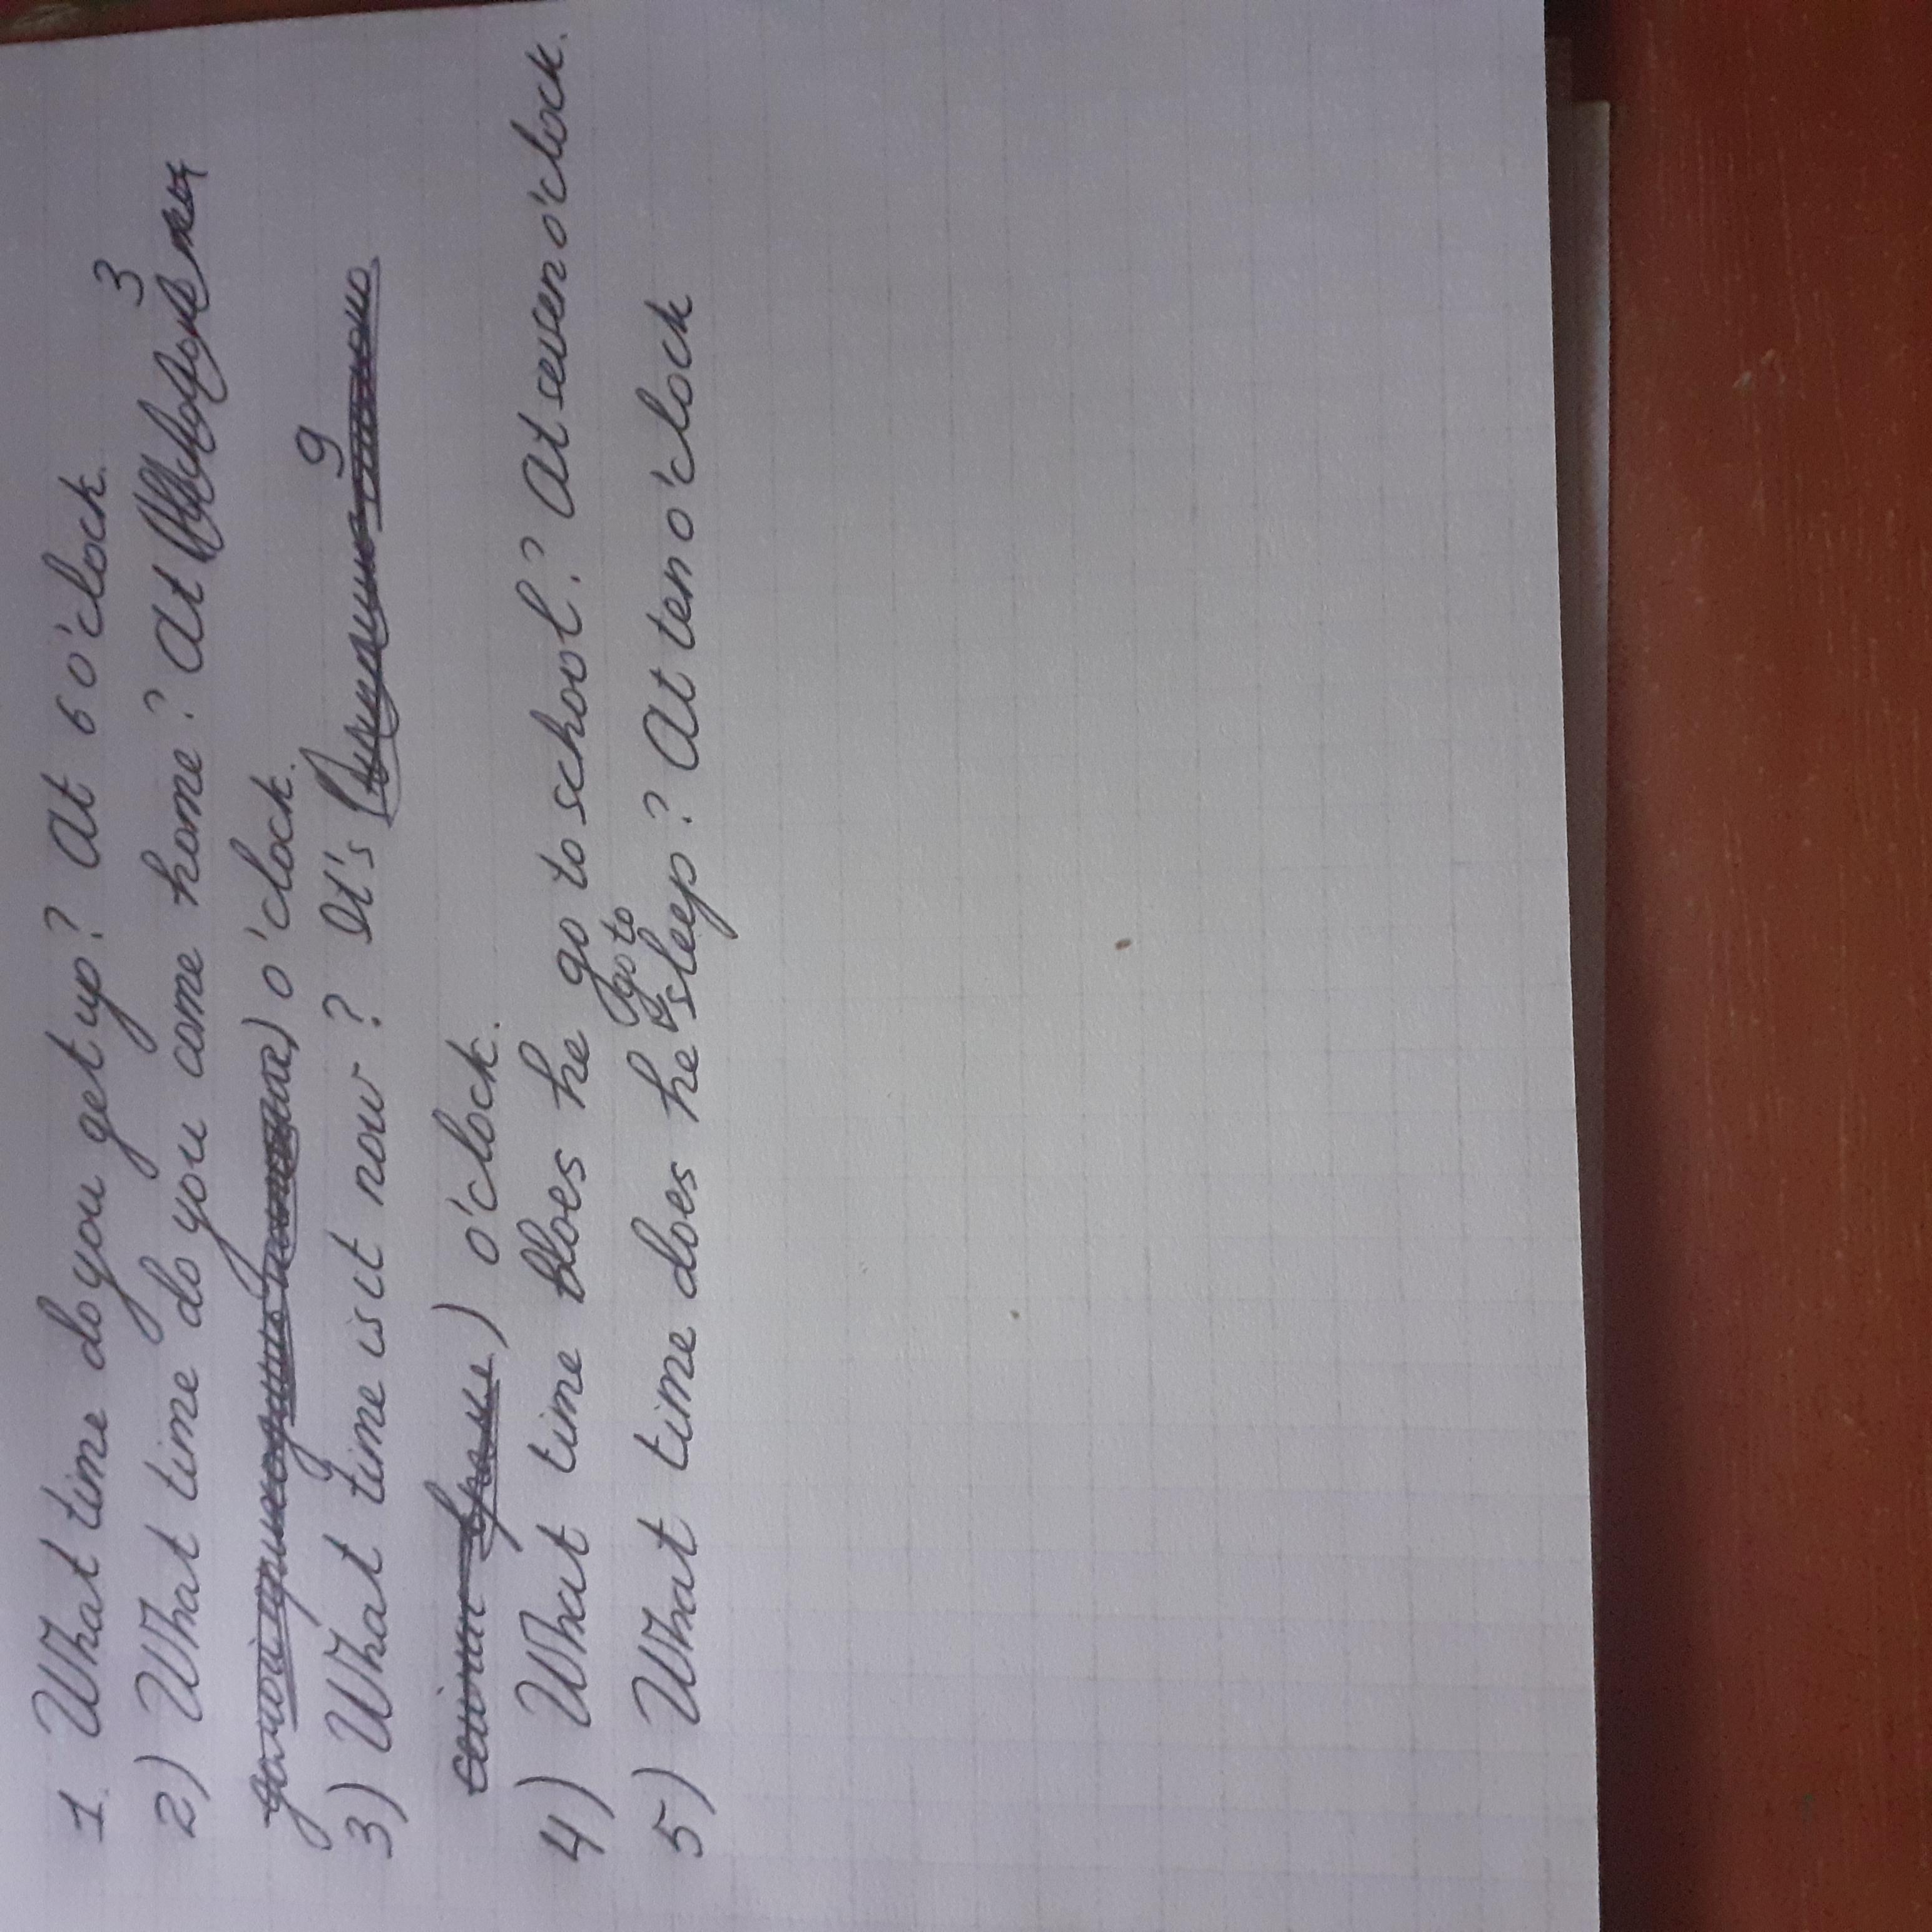 1. What time do you get up? At 6 o'clock.
3
2) What time do you come home? At
o'clock.
9
3) What time is it now? It's
) o'clock.
4) What time does he go to school? At seven o'clock.
go to
5) What time does he sleep? At ten o'clock